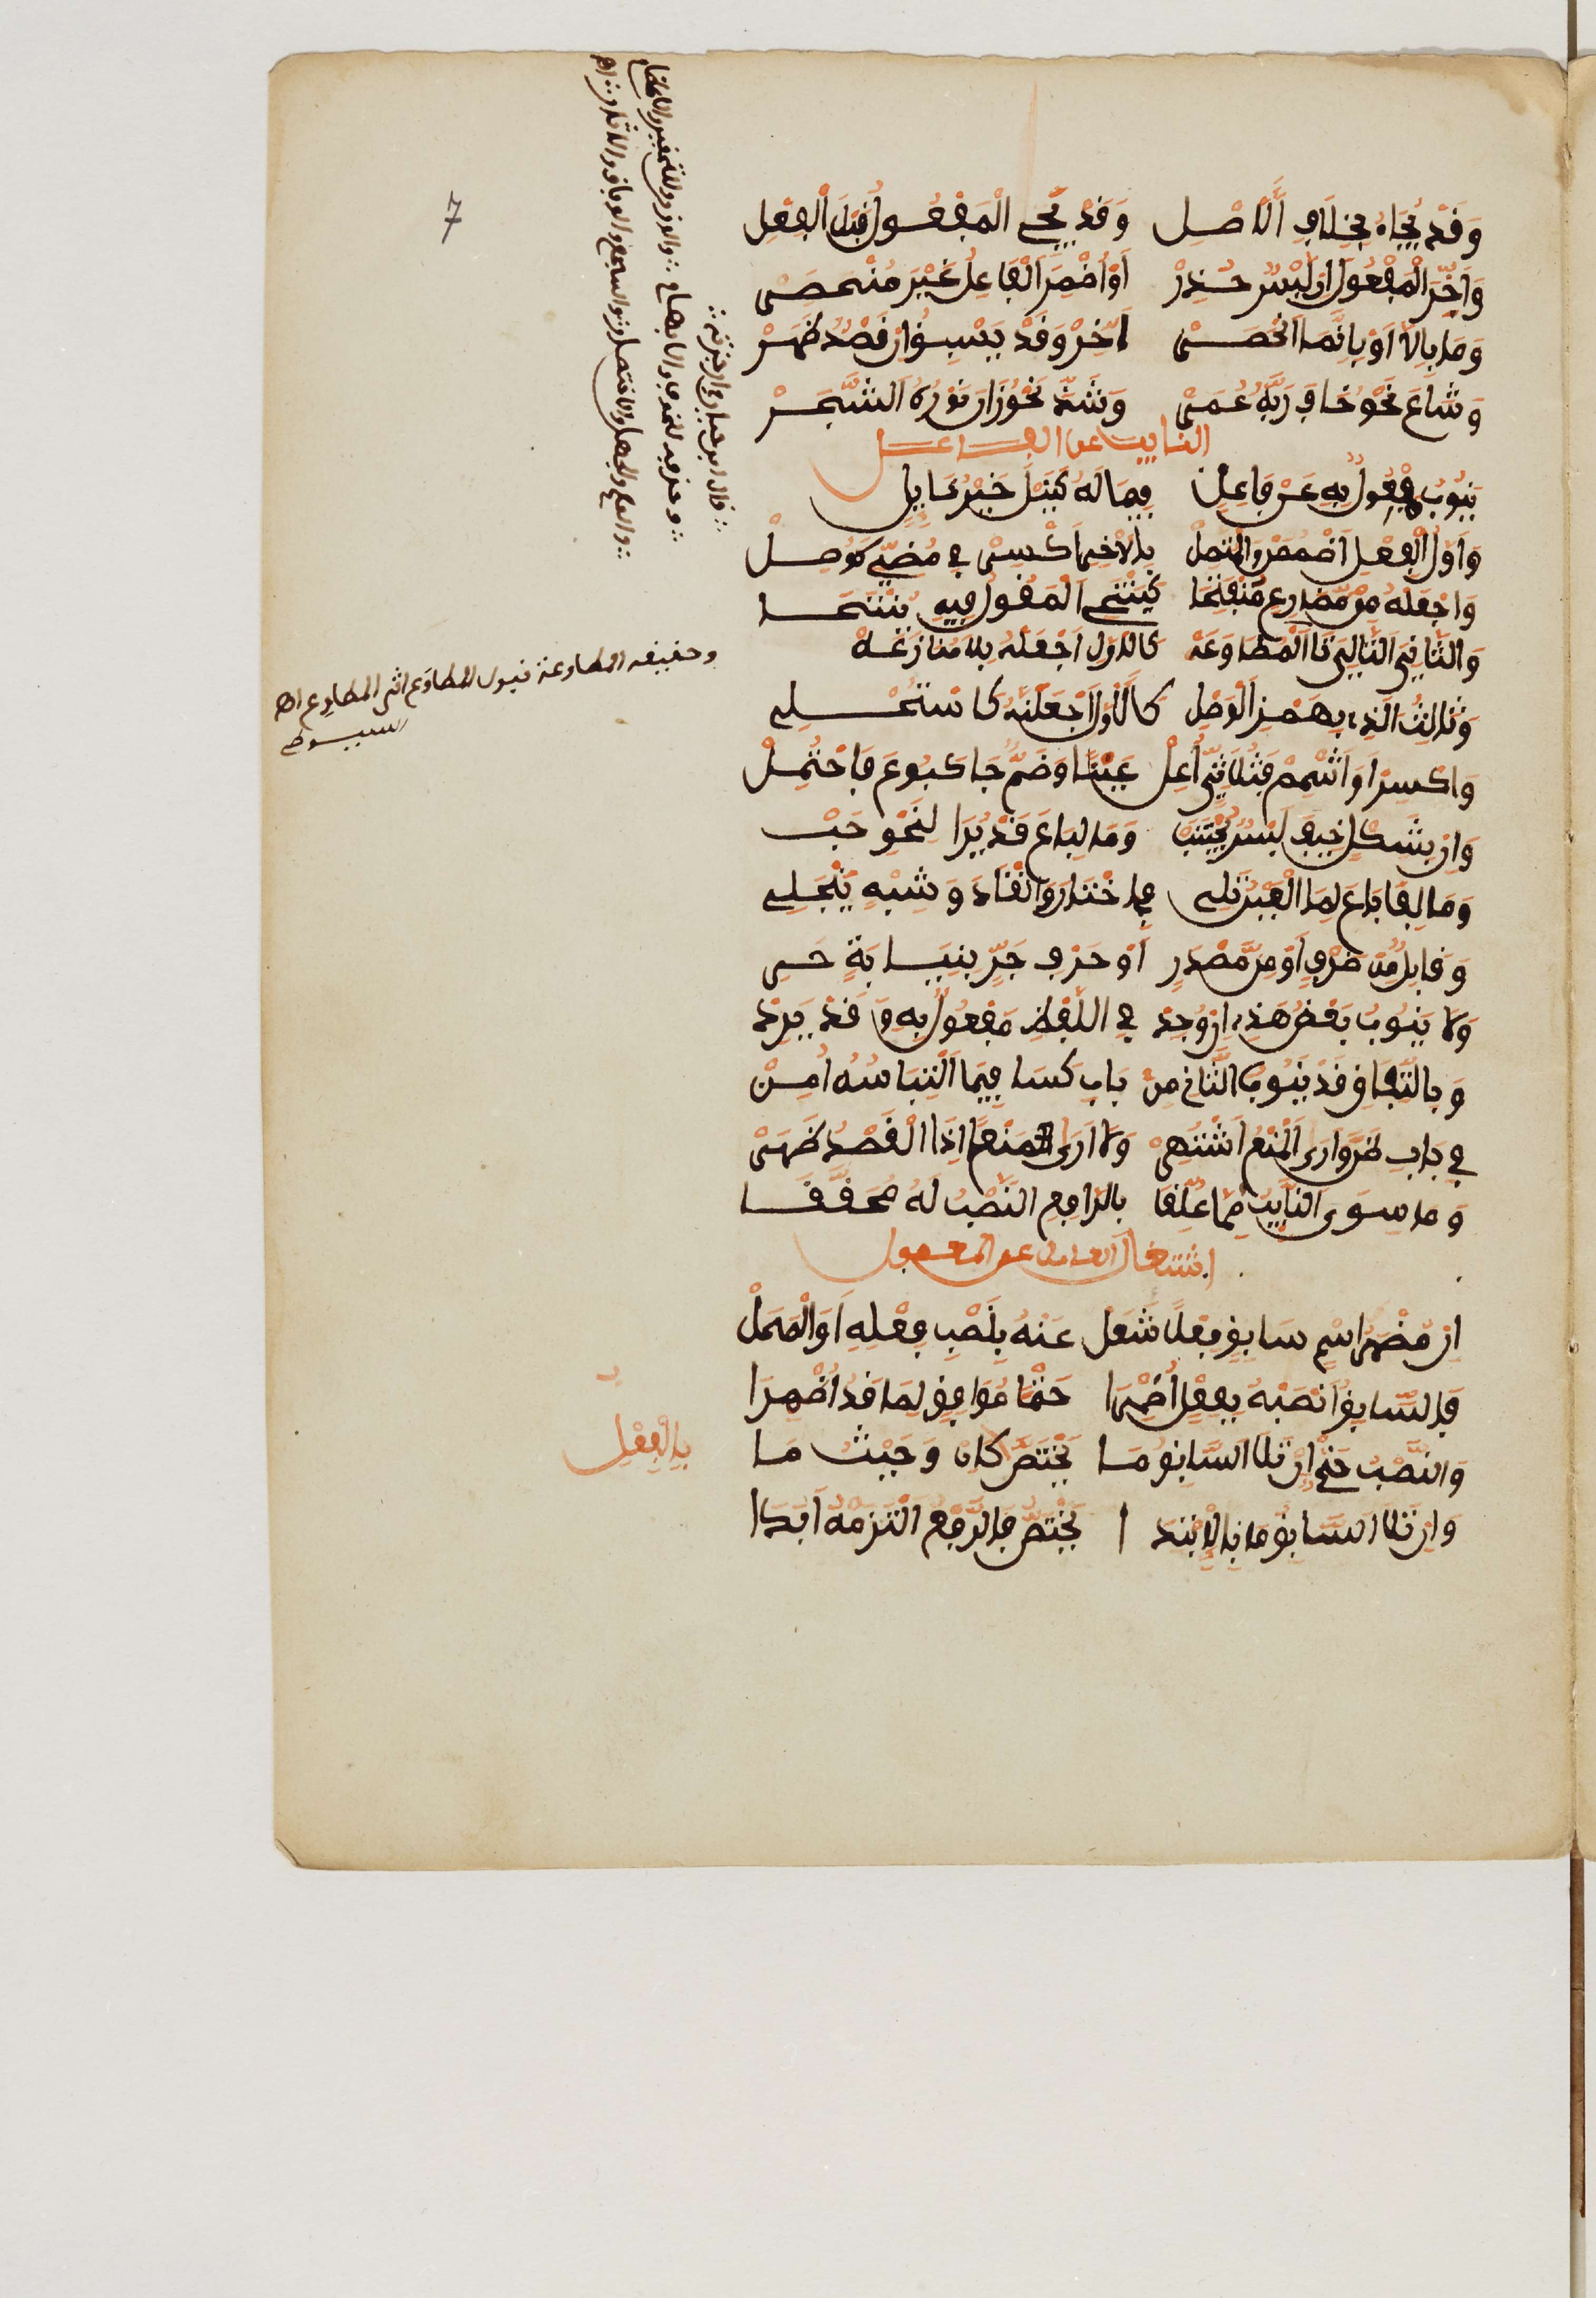 وَقَدْ يُجَاءُ بِخِلَافِ الَاصْلِ وَقَدْ يَجِي الْمَفْعُولُ قَبْلَ الْفِعْلِ
وَأَخِّرِ الْمَفْعُولَ إِن لَبْسٌ حُذِرْ أَوْ أُضْمِرَ الْفَاعِلُ غَيْرَ مُنْحَصِرْ
وَمَا بِإِلَّا أَوْ بِإِنَّمَا انْحَصَرْ أَخِّرْ وَقَدْ يَسْبِقُ إِن قَصْدٌ ظَهَرْ
وَشَاعَ نَحْوُ خَافَ رَبَّهُ عُمَرْ وَشَذَّ نَحْوُ زَانَ نَوْرُهُ الشَّجَرْ
النايب عن الفاعل
يَنُوبُ مَفْعُولٌ بِهِ عَنْ فَاعِلِ فِيمَا لَهُ كَنِيلَ خَيْرُ نَايِلِ
وَأَوَّلُ الْفِعْلِ اضْمُمَنْ وَالْمُتَّصِلْ بِالْآخِرِ اكْسِرْ فِي مُضِيٍّ كَوُصِلْ
وَاجْعَلْهُ مِن مُّضَارِعٍ مُنْفَتِحَا كَيَنْتَحِي الْمَقُولِ فِيهِ يُنْتَحَا
وَالثَّانِيَ التَّالِيَ تَا الْمُطَاوَعَهْ كَالَاوَّلِ اجْعَلْهُ بِلَا مُنَازَعَهْ
وَثَالِثَ الَّذِي بِهَمْزِ الْوَصْلِ كَالَاوَّلِ اجْعَلَنَّهُ كَاسْتُحْلِي
وَاكْسِرْ أَوَ اشْمِمْ فَا ثُلَاثِيٍّ أُعِلّْ عَيْنًا وَضَمٌّ جَا كَبُوعَ فَاحْتُمِلْ
وَإِن بِشَكْلٍ خِيفَ لَبْسٌ يُجْتَنَبْ وَمَا لِبَاعَ قَدْ يُرَا لِنَحْوِ حَبّْ
وَمَا لِفَا بَاعَ لِمَا الْعَيْنُ تَلِي فِي اخْتَارَ وَانْقَادَ وَشِبْهٍ يَنْجَلِي
وَقَابِلٌ مِّن ظَرْفٍ أَوْ مِن مَّصْدَرِ أَوْ حَرْفِ جَرٍّ بِنِيَابَةٍ حَرِي
وَلَا يَنُوبُ بَعْضُ هَذِي إِن وُجِدْ فِي اللَّفْظِ مَفْعُولٌ بِهِ وَقَدْ يَرِدْ
وَبِاتِّفَاقٍ قَدْ يَنُوبُ الثَّانِ مِنْ بَابِ كَسَا فِيمَا الْتِبَاسُهُ أُمِنْ
فِي بَابِ ظَنَّ وَأَرَى الْمَنْعُ اشْتَهَرْ وَلَا أَرَى مَنْعًا إِذَا الْقَصْدُ ظَهَرْ
وَمَا سِوَى النَّايِبِ مِمَّا عُلِّقَا بِالرَّافِعِ النَّصْبُ لَهُ مُحَقَّقَا
اشتغال العامل عن المعمول
إِن مُّضْمَرُ اسْمٍ سَابِقٍ فِعْلًا شَغَلْ عَنْهُ بِنَصْبِ لَفْظِهِ أَوِ الْمَحَلّْ
فَالسَّابِقَ انْصِبْهُ بِفِعْلٍ أُضْمِرَا حَتْمًا مُوَافِقٍ لِمَا قَدْ أُظْهِرَا
وَالنَّصْبُ حَتْمٌ إِن تَلَا السَّابِقُ مَا يَخْتَصُّ كَإِن وَحَيْثُ مَا
بِالْفِعْلِ
وَإِن تَلَا السَّابِقُ مَا بِالِابْتِدَا يَخْتَصُّ فَالرَّفْعَ الْتَزِمْهُ أَبَدَا
وحقيقة المطاوعة قبول المطاوَع اثر المطاوِع اهـ
سيوطي
7